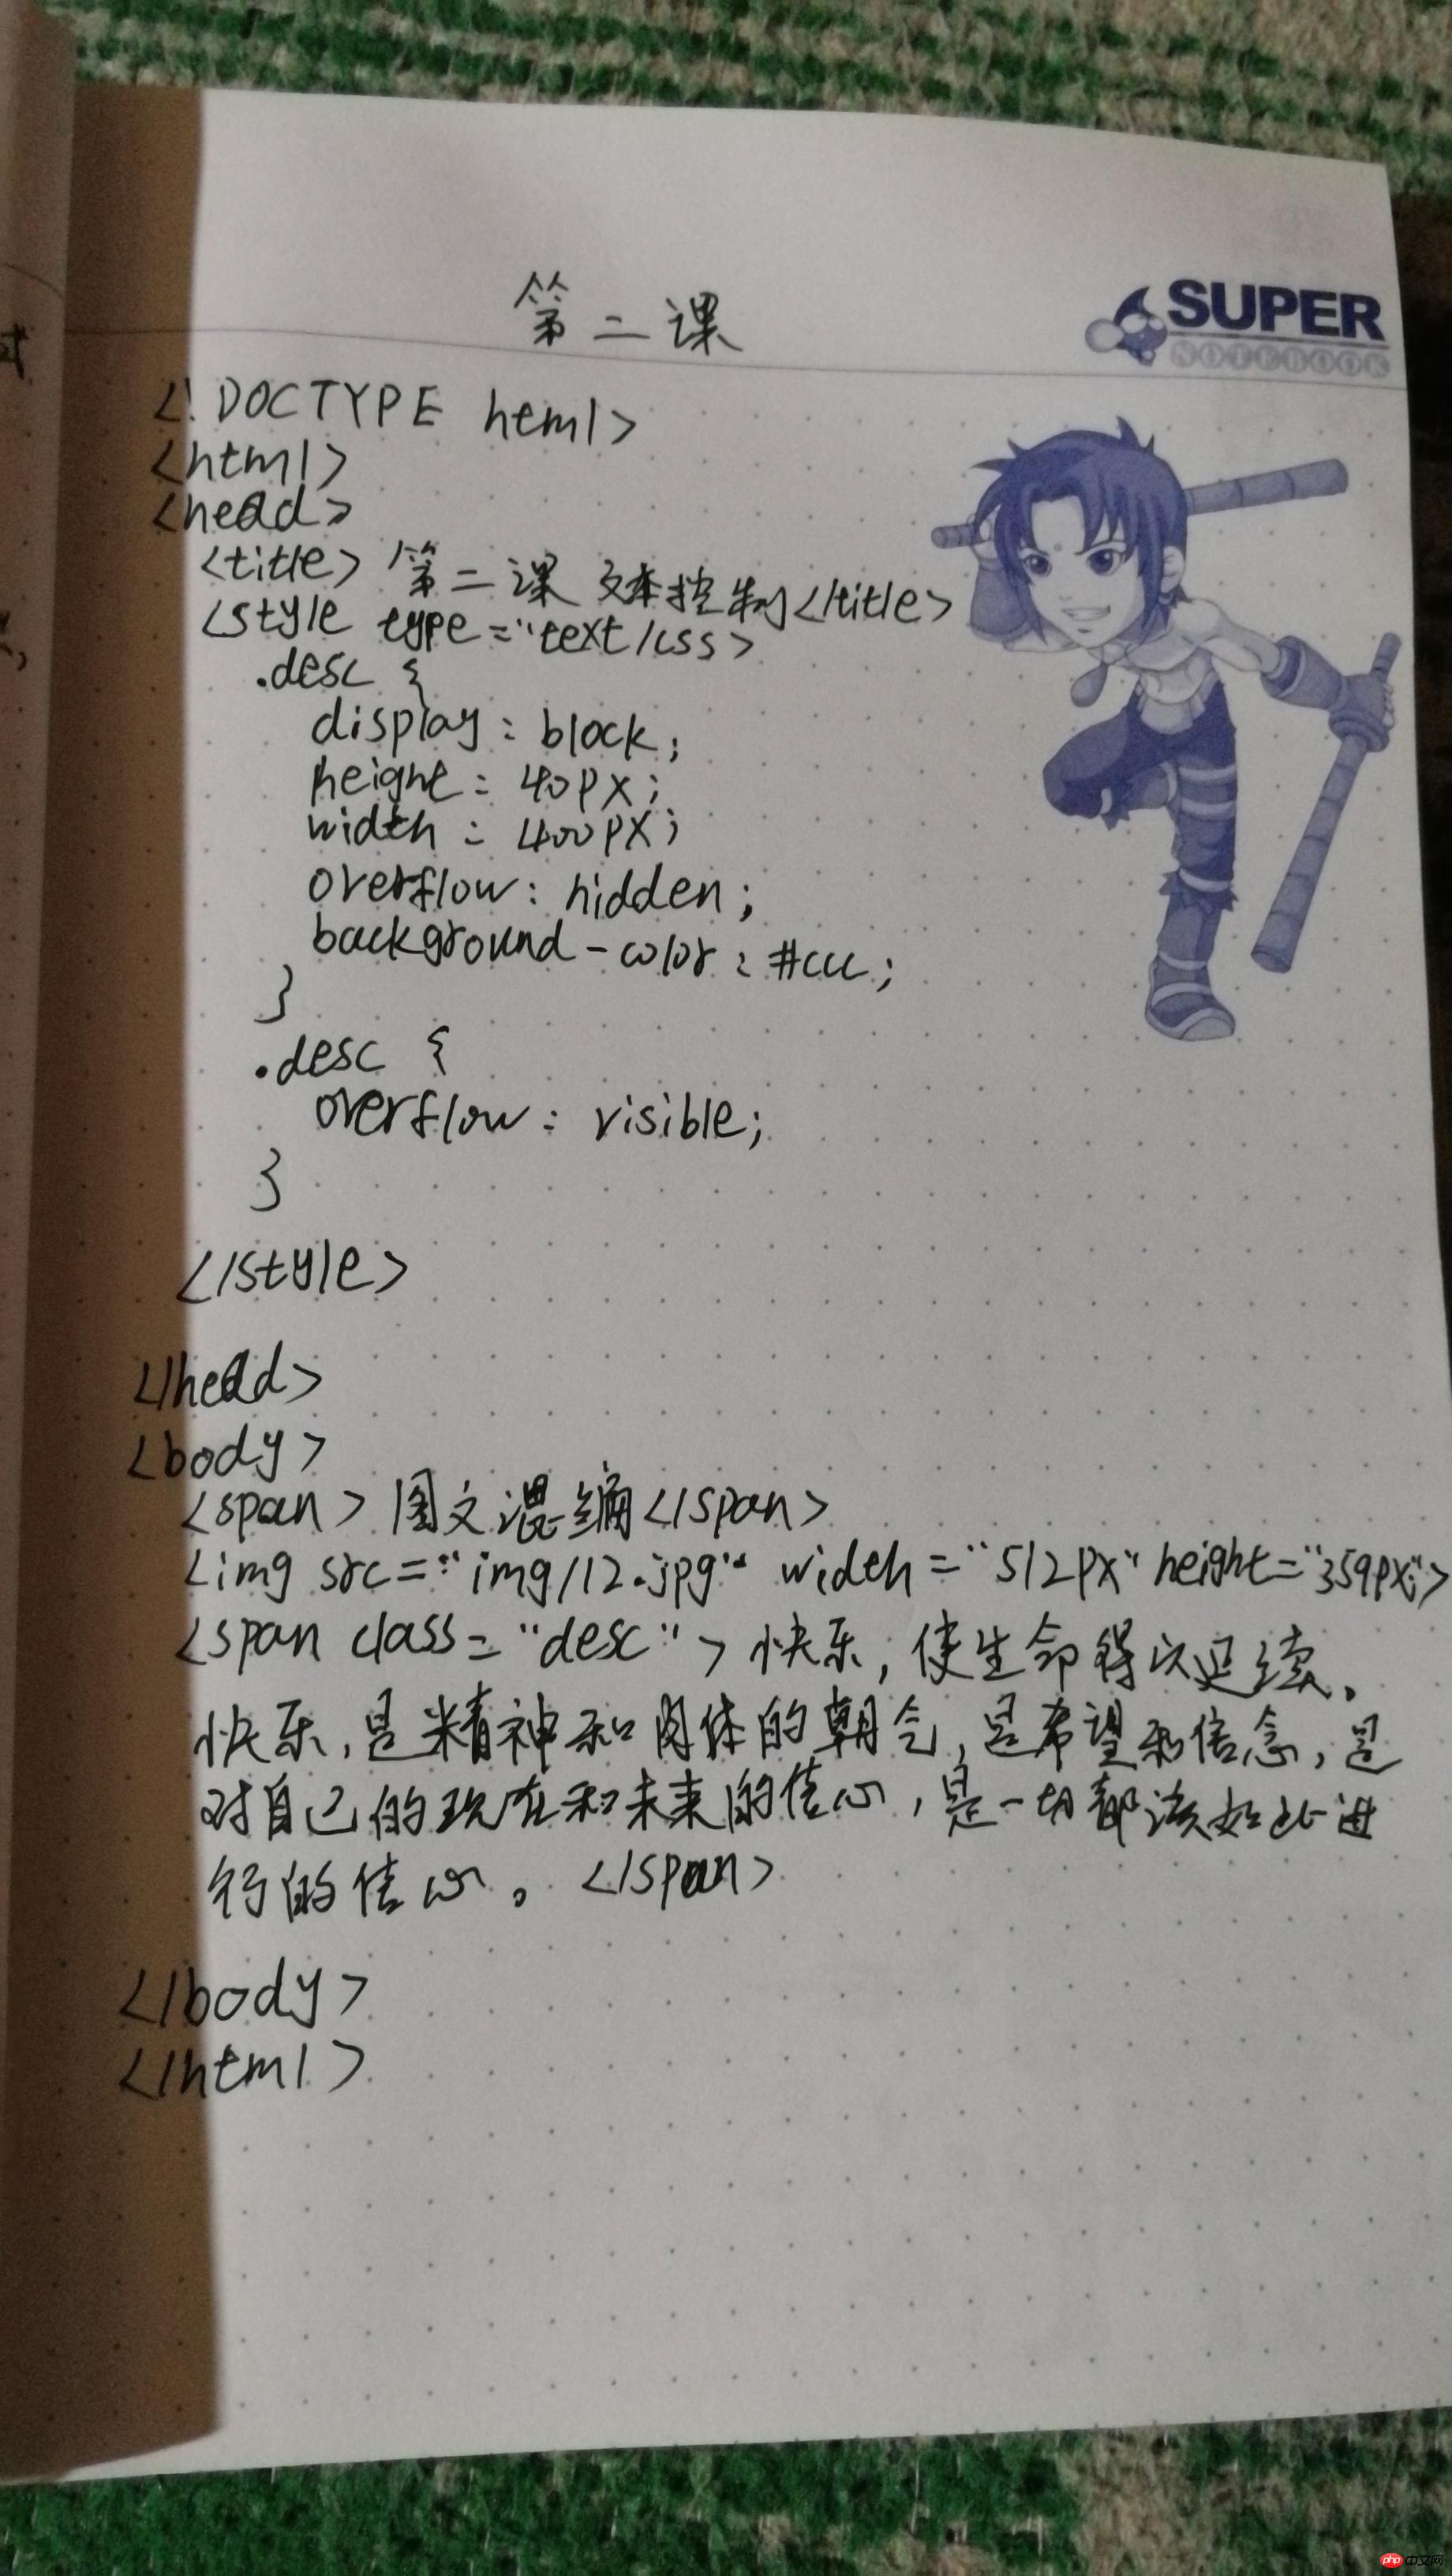 第二课
SUPER
NOTEBOOK
<!DOCTYPE html>
<html>
<head>
<title>第二课 文本控制</title>
<style type="text/css>
.desc {
display: block;
height: 40px;
width: 400px;
overflow: hidden;
background-color: #ccc;
}
.desc {
overflow: visible;
}
</style>
</head>
<body>
<span>图文混编</span>
<img src="img/12.jpg" width="512px" height="359px">
<span class="desc">快乐,使生命得以延续。
快乐,是精神和肉体的朝气,是希望和信念,是
对自己的现在和未来的信心,是一切都该如此进
行的信心。</span>
</body>
</html>
php 中文网